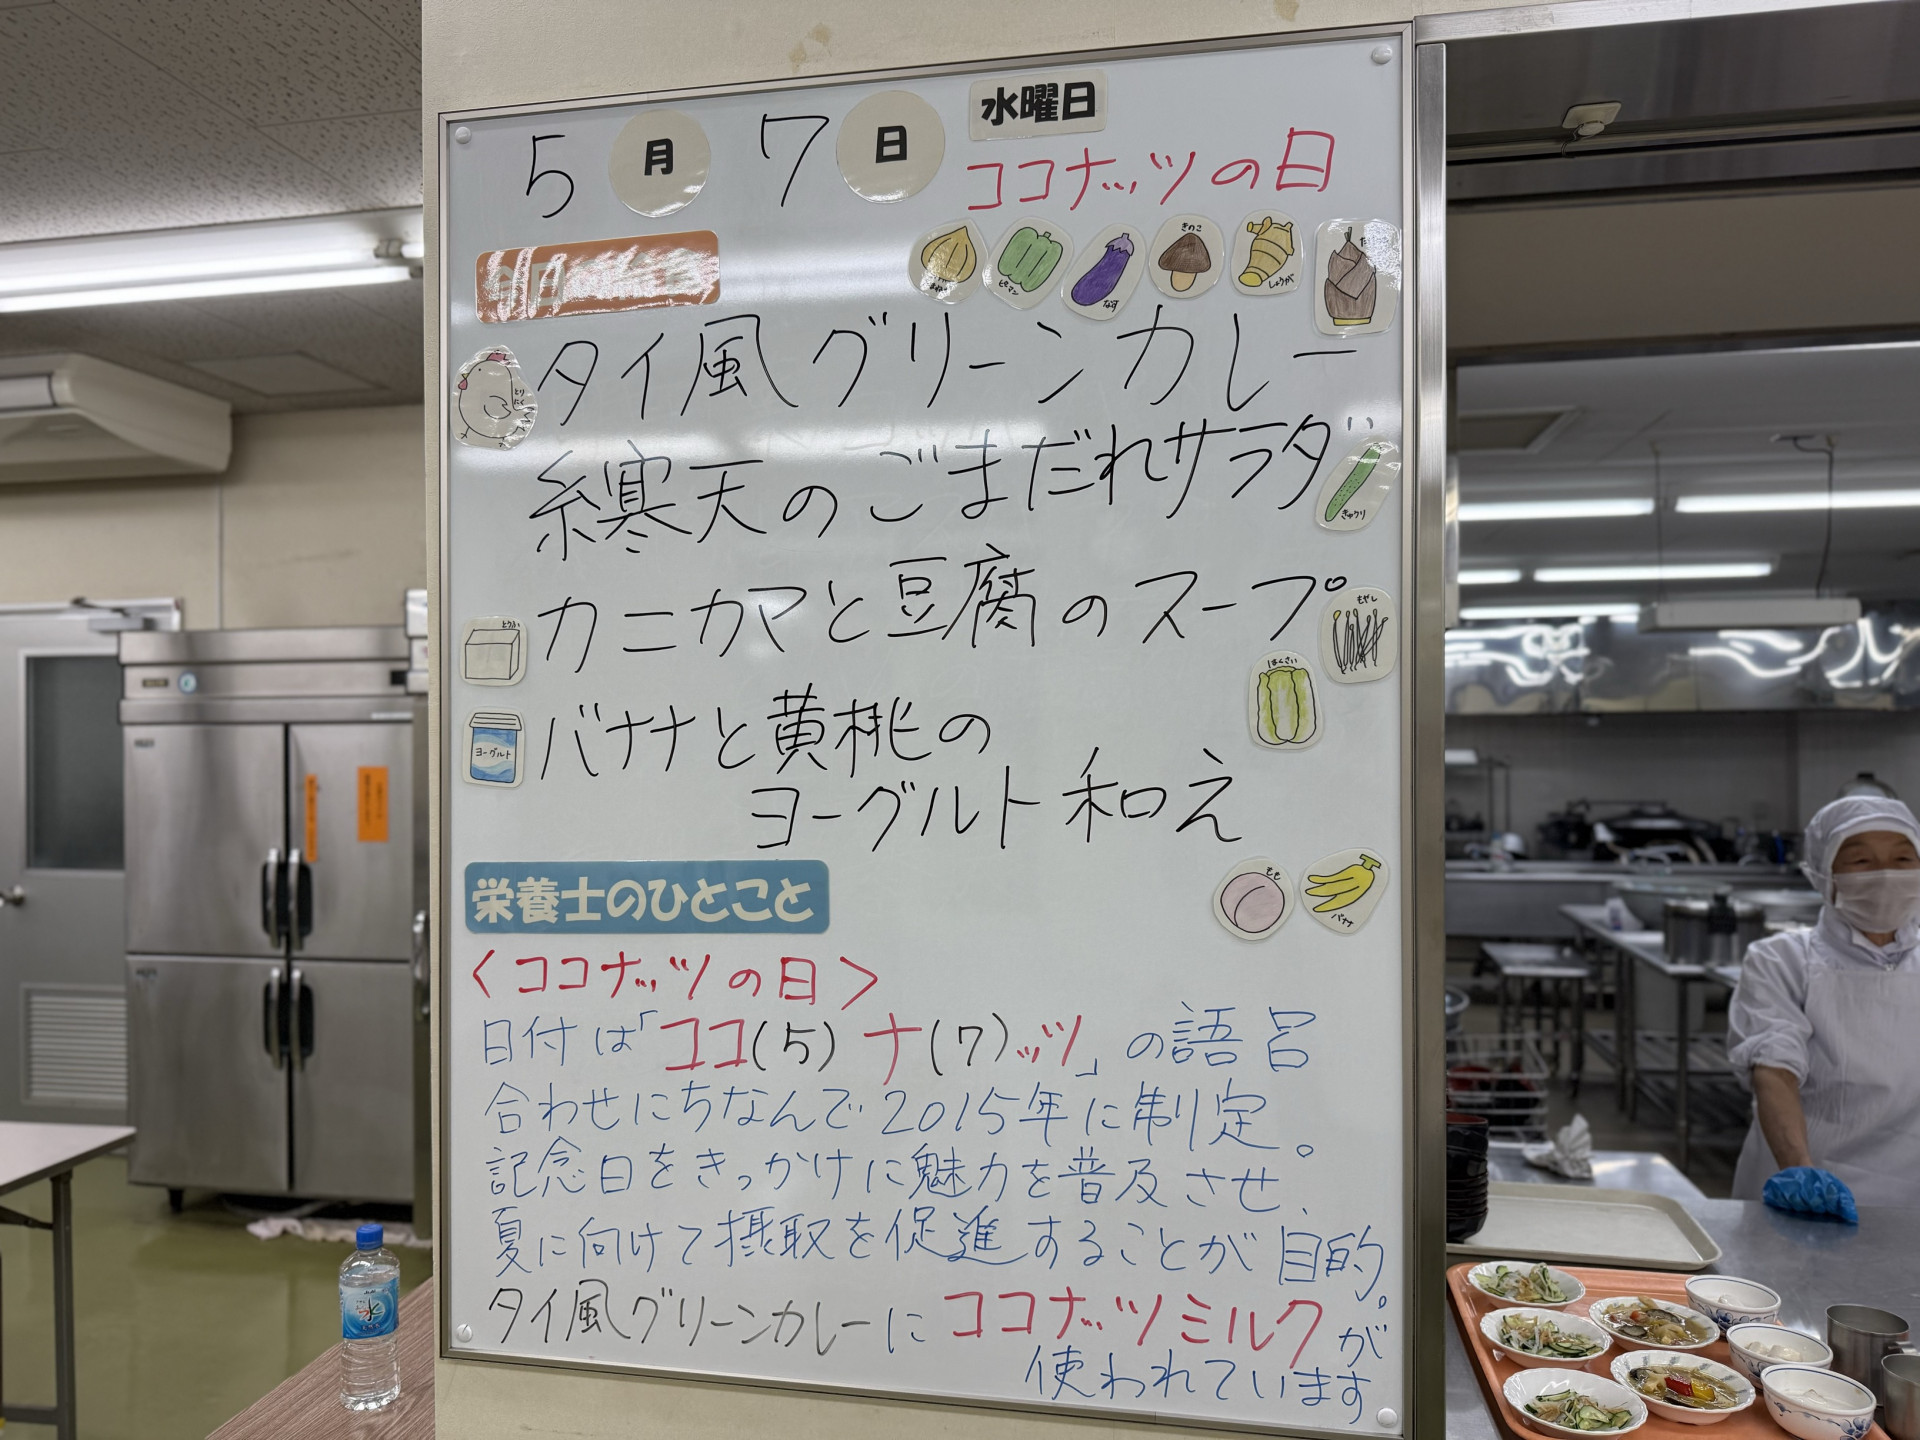 水曜日
5月7日
ココナッツの日
きのこ
ピーマン
なす
しょうが
タイ風グリーンカレー
とりにく
糸寒天のごまだれサラダ
きゅうり
カニカマと豆腐のスープ
とうふ
もやし
はくさい
バナナと黄桃の
ヨーグルト
ヨーグルト和え
栄養士のひとこと
もも
バナナ
<ココナッツの日>
日付は「ココ(5)ナ(7)ッツ」の語呂
合わせにちなんで2015年に制定。
記念日をきっかけに魅力を普及させ、
夏に向けて摂取を促進することが目的。
タイ風グリーンカレーにココナッツミルクが
使われています